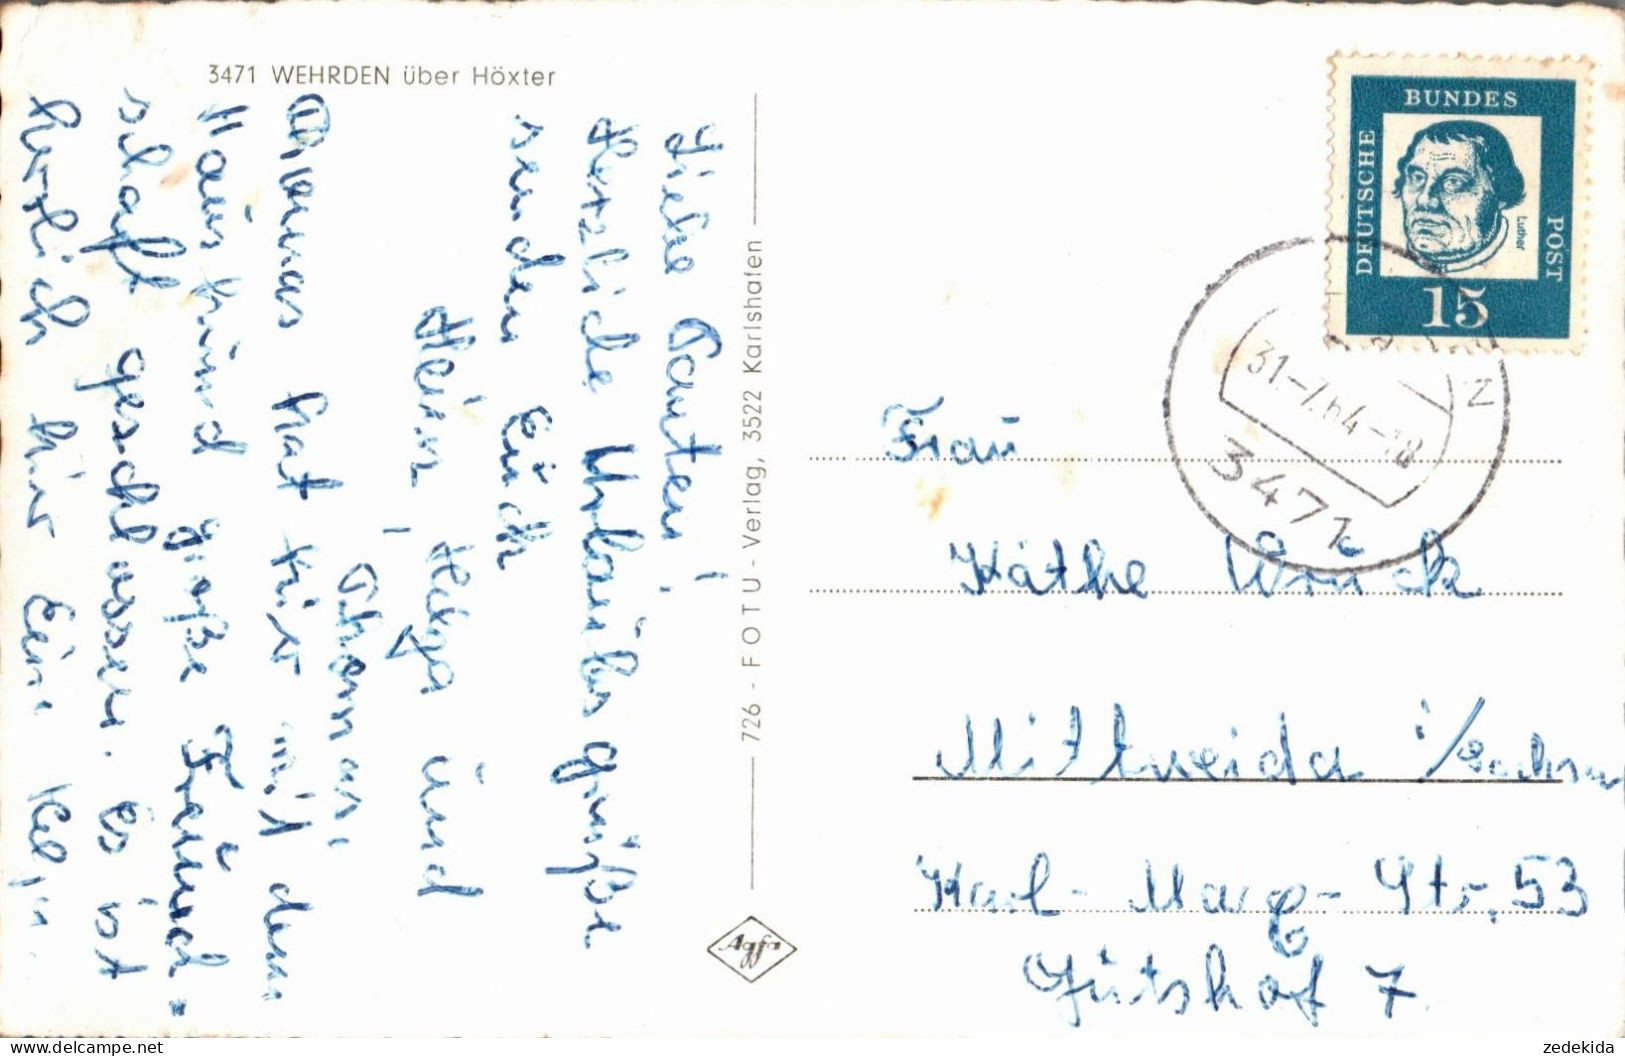 3471 WEHRDEN über Höxter
Liebe Tanten!
Herzliche Urlaubsgrüße
senden Euch
Heinz, Helga und
Thomas.
Thomas hat hier mit dem
Haushund große Freund-
schaft geschlossen. Es ist
herrlich hier
726 - FOTU - Verlag, 3522 Karlshafen
Agfa
DEUTSCHE
BUNDES
POST
Luther
15
31.-7.64-18
3471
Frau
Käthe Wruck
Mittweida i/Sachsen
Karl-Marx-Str. 53
Gutshof 7
zedekida